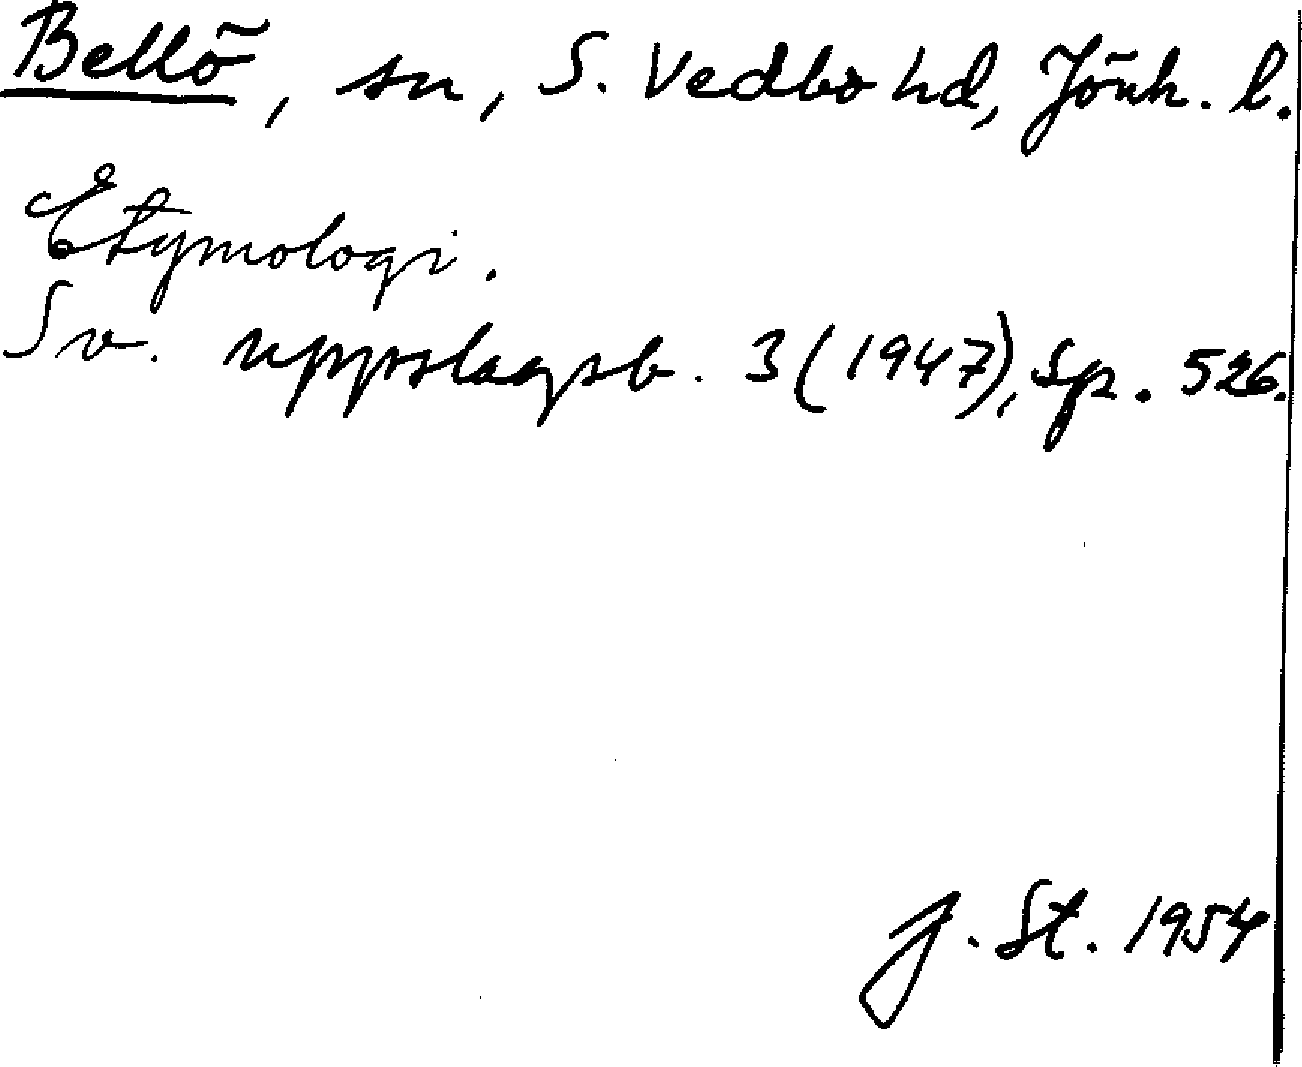 Bellö, sn, S. Vedbo hd, Jönk. l.
Etymologi.
Sv. uppslagsb. 3 (1947), sp. 526.
J. St. 1954